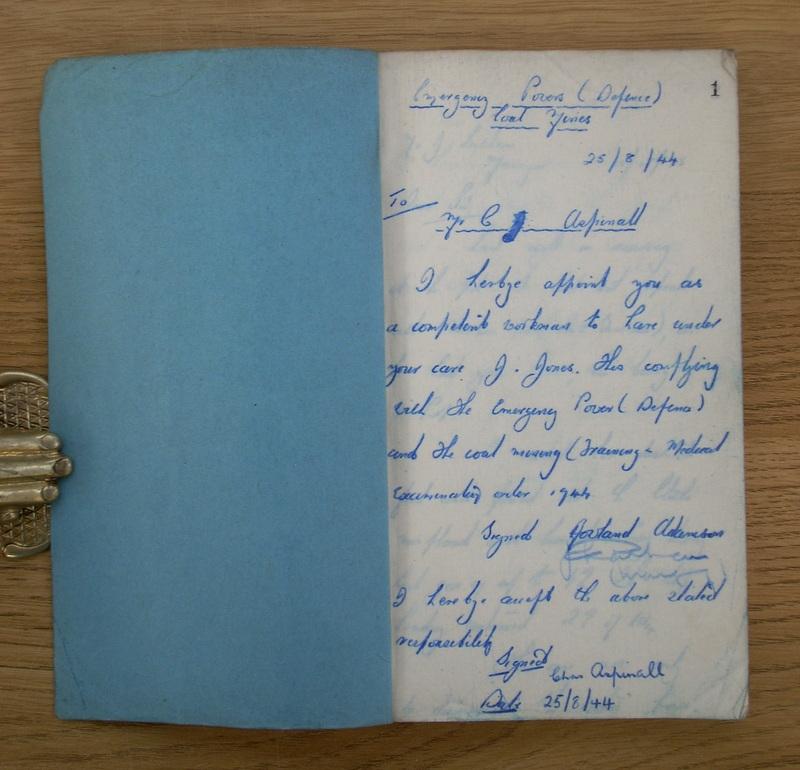 1
Emergency Powers (Defence)
Coal Mines
25/8/44
To
Mr C J Aspinall
I herbye appoint you as
a competent workman to have under
your care J. Jones. This complying
with the Emergency Power (Defence)
and the coal mining (Training & Medical
Examination) order 1944
Signed Rowland Adamson
I herebye accept the above stated
responsibility
Signed
Chas Aspinall
Date 25/8/44